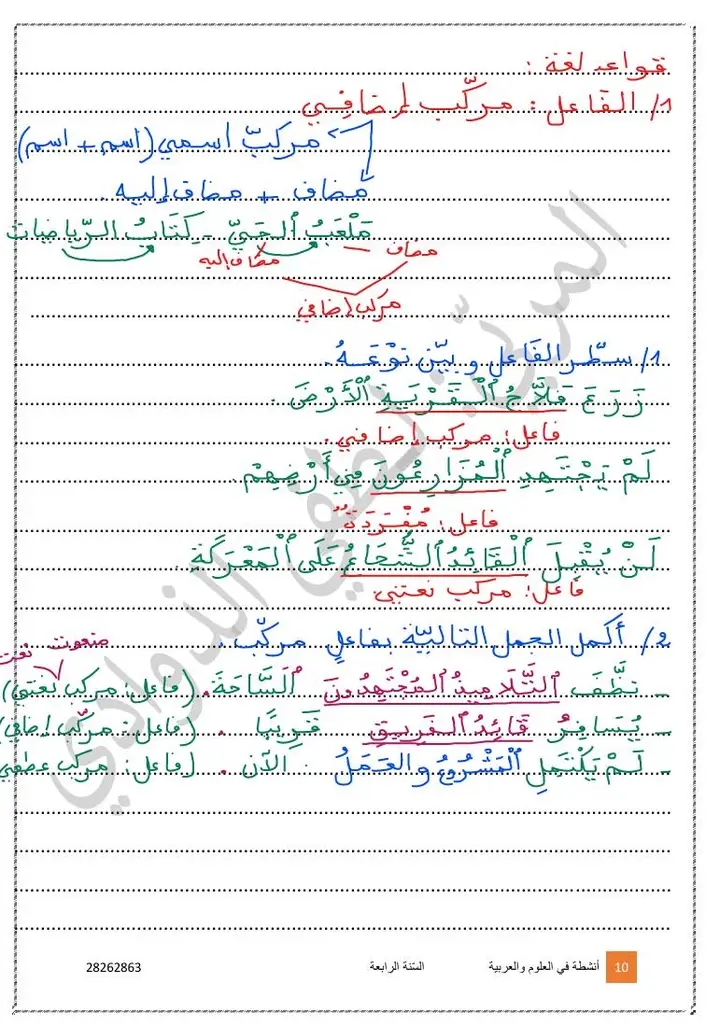 قواعد لغة :
1/ الفَاعل : مركّب إضافِي
مركبّ اسمي (اسم + اسم)
مضاف + مضاف إليه .
مَلْعَبُ الحَيِّ - كِتَابُ الرِّياضيات
مضاف
مضاف إليه
مركب إضافي
1/ سطّر الفَاعل و بيّن نَوْعَهُ.
زَرَعَ فَلاَّحُ الْقَرْيَةِ الْأَرْضَ .
فاعل: مركب إضافي .
لَمْ يَجْتَهِدِ الْمُزَارِعُونَ فِي أَرْضِهِمْ.
فاعل: مُفْرَدَة
لَنْ يُقْبِلَ الْقَائِدُ الشُّجَاعُ عَلَى الْمَعْرَكَةِ.
فاعل: مركب نعتي
2/ أكمل الجمل التاليّة بفاعلٍ مركّب .
منعوت نعت
- نظَّفَ التَّلَامِيذُ الْمُجْتَهِدُونَ السَّاحَةَ. (فاعل: مركب نعتي)
- يُسَافِرُ قَائِدُ الفَرِيقِ قَرِيبًا . (فاعل: مركّب إضافي)
- لَمْ يَكْتَمِلِ الْمَشْرُوعُ و العَمَلُ الآنَ . (فاعل: مركب عطفي
المربّي: لطفي الذوادي
10 أنشطة في العلوم والعربية السّنة الرابعة 28262863